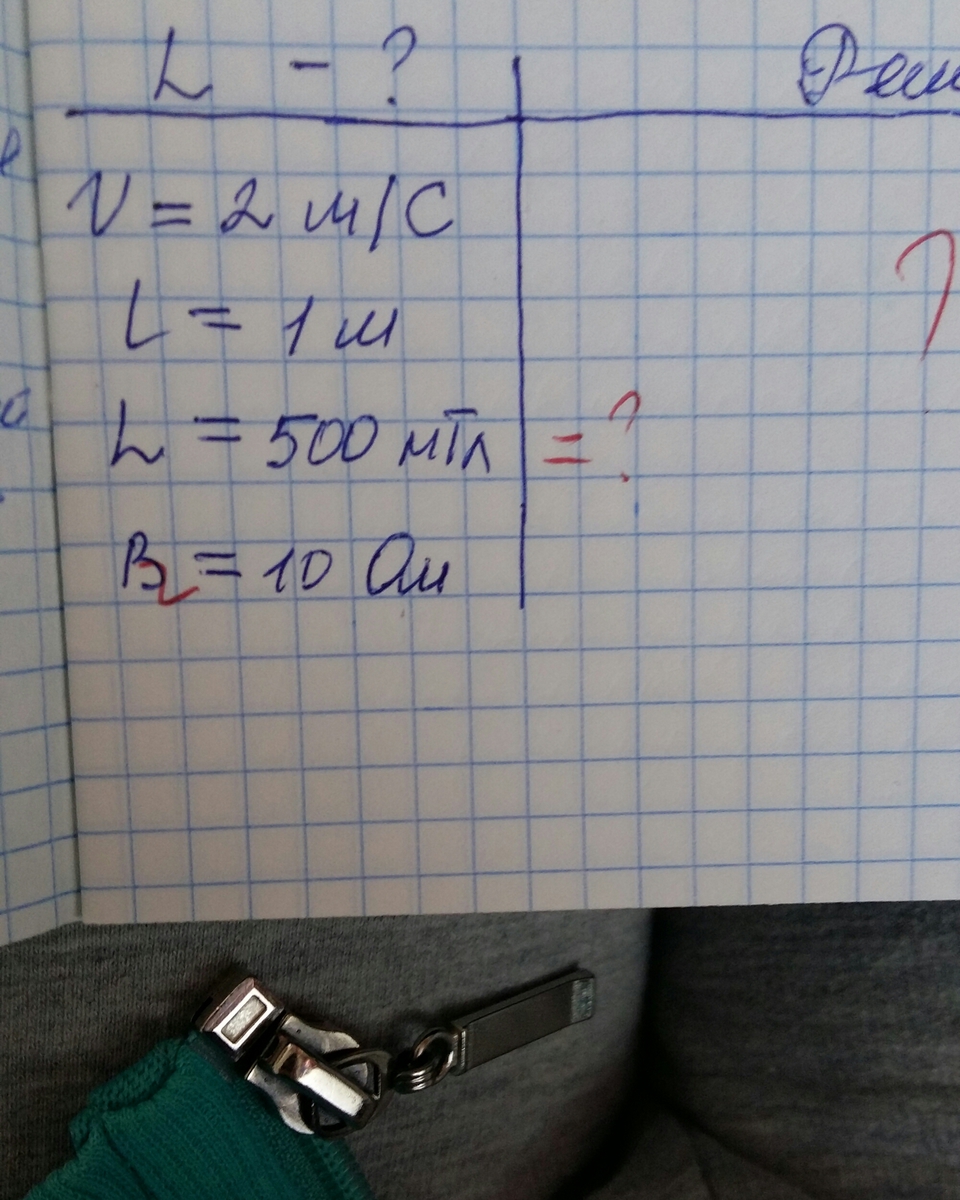 L - ?
V = 2 м/с
L = 1 м
L = 500 мТл = ?
B = 10 Ом